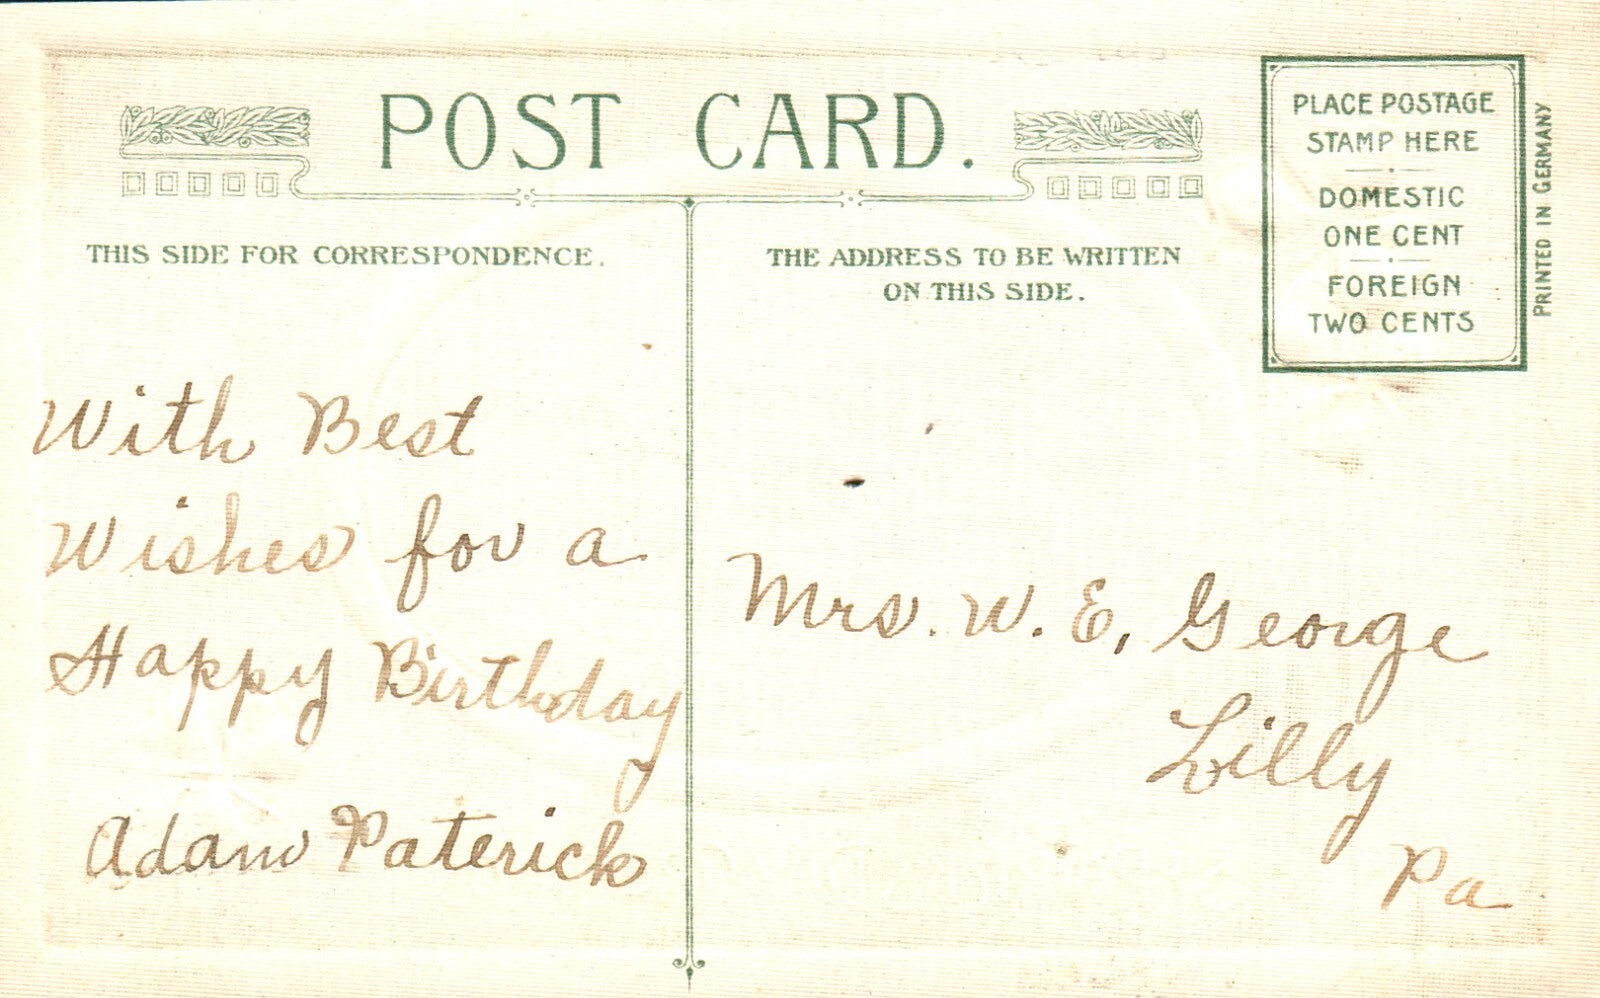 POST CARD.
THIS SIDE FOR CORRESPONDENCE.
With Best
Wishes for a
Happy Birthday
Adam Paterick
THE ADDRESS TO BE WRITTEN
ON THIS SIDE.
Mrs. W. E, George
Lilly
Pa
PLACE POSTAGE
STAMP HERE
DOMESTIC
ONE CENT
FOREIGN
TWO CENTS
PRINTED IN GERMANY